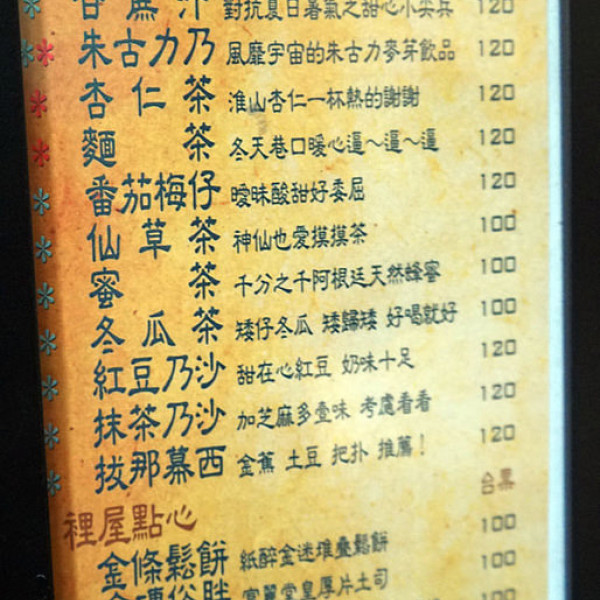 對抗夏日暑氣之甜心小尖兵 120
朱古力乃 風靡宇宙的朱古力麥芽飲品 120
杏仁茶 淮山杏仁一杯熱的謝謝 120
麵茶 冬天巷口暖心逼~逼~逼 120
番茄梅仔 曖昧酸甜好委屈 120
仙草茶 神仙也愛摸摸茶 100
蜜茶 千分之千阿根廷天然蜂蜜 100
冬瓜茶 矮仔冬瓜 矮歸矮 好喝就好 100
紅豆乃沙 甜在心紅豆 奶味十足 120
抹茶乃沙 加芝麻多壹味 考慮看看 120
拔那慕西 金蕉 土豆 把扑 推薦! 120
裡屋點心 台票
金條鬆餅 紙醉金迷堆疊鬆餅 100
富麗堂皇厚片土司 100
100